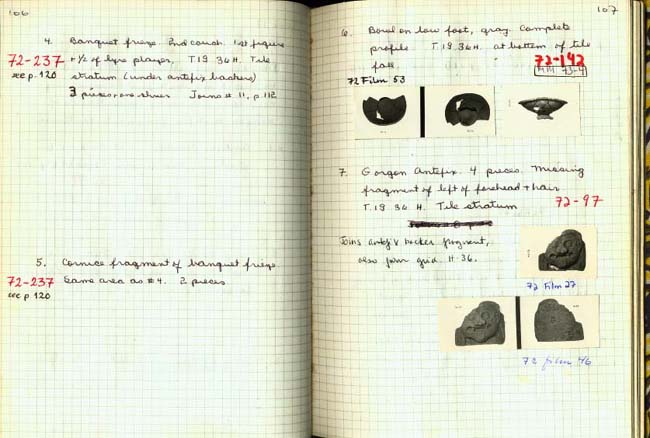 106
4. Banquet frieze. 2nd couch. 1st figure
72-237 + ½ of lyre player. T 19. 36 H. Tile
see p. 120 stratum (under antefix backers)
3 pieces + one sliver Joins # 11, p. 112
5. Cornice fragment of banquet frieze
72-237 Same area as # 4. 2 pieces
see p. 120
107
6. Bowl on low foot, gray. Complete
profile T. 19. 36 H. at bottom of tile
fall.
72-142
72 Film 53
7. Gorgon Antefix. 4 pieces. Missing
fragment of left of forehead + hair
T. 19 36 H. Tile stratum 72-97
Joins antefix backer fragment,
also from grid. H-36.
72 Film 27
72 film 46